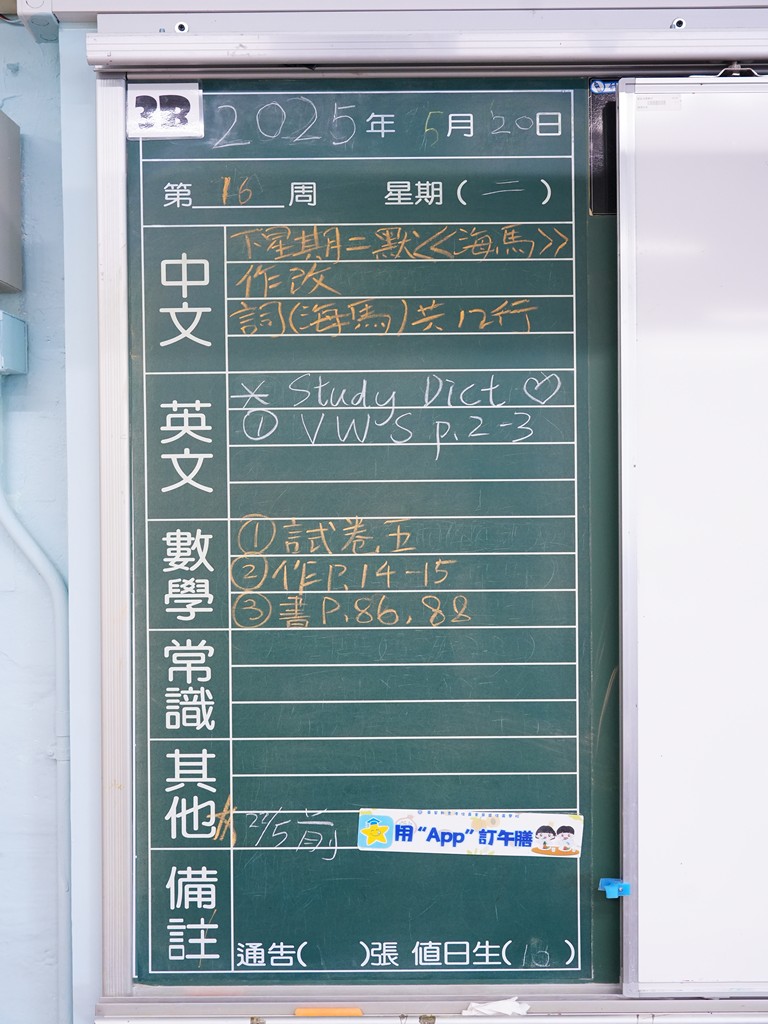 3B
2025年 5月 20日
第 16 周 星期(二)
中文
下星期二默<<海馬>>
作改
詞(海馬)共12行
英文
* Study Dict ♡
① VWS p.2-3
數學
①試卷五
②作P.14-15
③書P.86,88
常識
其他
22/5前
用“App”訂午膳
備註
通告( )張 值日生(13)